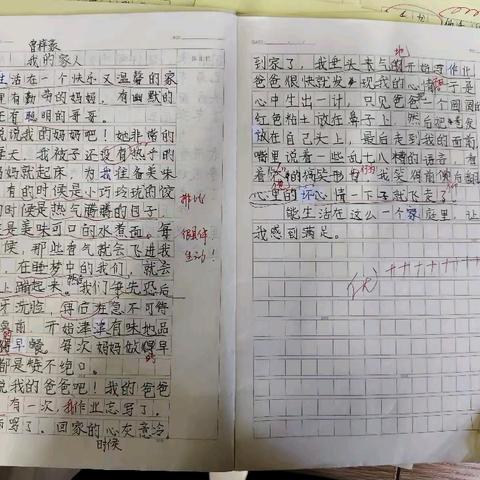 曾梓豪
我的家人
生活在一个快乐又温馨的家
里有勤劳的妈妈，有幽默的
还有聪明的哥哥。
说说我的妈妈吧！她非常的
每天，我被子还没有热乎的
妈妈就起床，为我准备美味
有的时候是小巧玲珑的饺
的时候是热气腾腾的包子，
候是美味可口的水煮面。每
候，那些香气就会飞进我
，在睡梦中的我们，就会
上蹦起来。我们争先恐后
牙洗脸，再后来急不可待
桌前，开始津津有味地品
早餐。每次妈妈做得早
都是赞不绝口。
说我的爸爸吧！我的爸爸
有一次，我作业忘写了，
师骂了。回家的心灰意冷
时候
排比
很具体
生动！
到家了，我垂头丧气的开始写作业
地
爸爸很快就发现我的心情，于是
心中生出一计，只见爸爸一个圆圆的
红色粘土放在鼻子上，然后把
放在自己头上，最后走到我的面前，
嘴里说着一些乱七八糟的语言，有
着的搞笑形，我笑得前俯后翻
心里的坏心情一下子就飞走了。
能生活在这么一个家庭里，让
我感到满足。
优